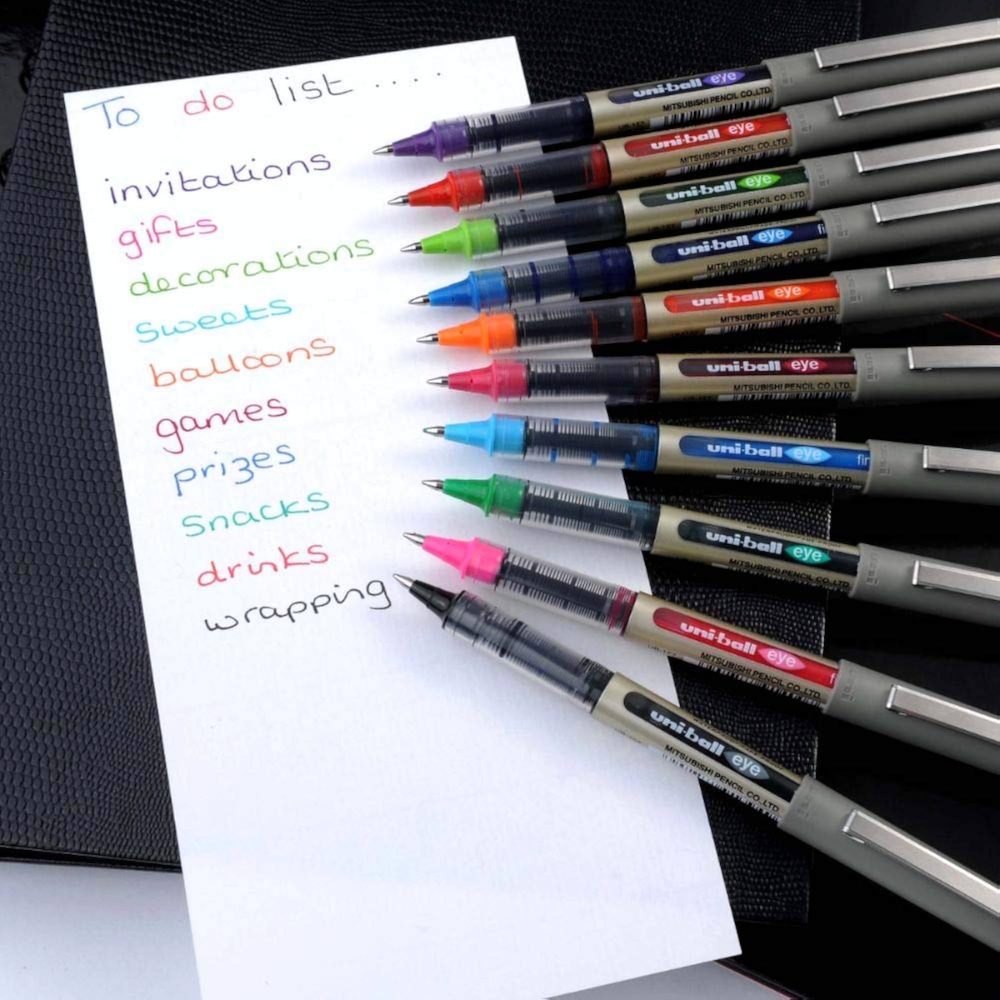 To do list ....
invitations
gifts
decorations
sweets
balloons
games
prizes
snacks
drinks
wrapping
uni-ball eye
MITSUBISHI PENCIL CO.,LTD.
uni-ball eye
MITSUBISHI PENCIL CO.,LTD.
uni-ball eye
MITSUBISHI PENCIL CO.,LTD.
uni-ball eye
MITSUBISHI PENCIL CO.,LTD.
uni-ball eye
MITSUBISHI PENCIL CO.,LTD.
uni-ball eye
MITSUBISHI PENCIL CO.,LTD.
uni-ball eye
MITSUBISHI PENCIL CO.,LTD.
uni-ball eye
MITSUBISHI PENCIL CO.,LTD.
uni-ball eye
MITSUBISHI PENCIL CO.,LTD.
uni-ball eye
MITSUBISHI PENCIL CO.,LTD.